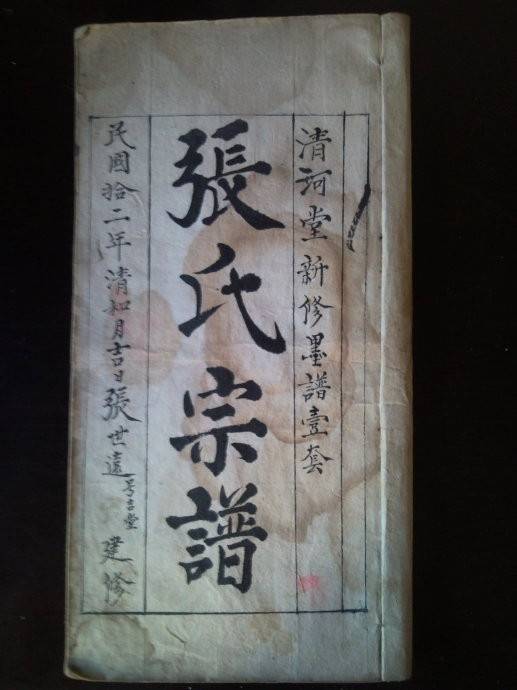 清河堂新修墨譜壹套
張氏宗譜
民國拾二年清和月吉日張世遠號吉堂建修